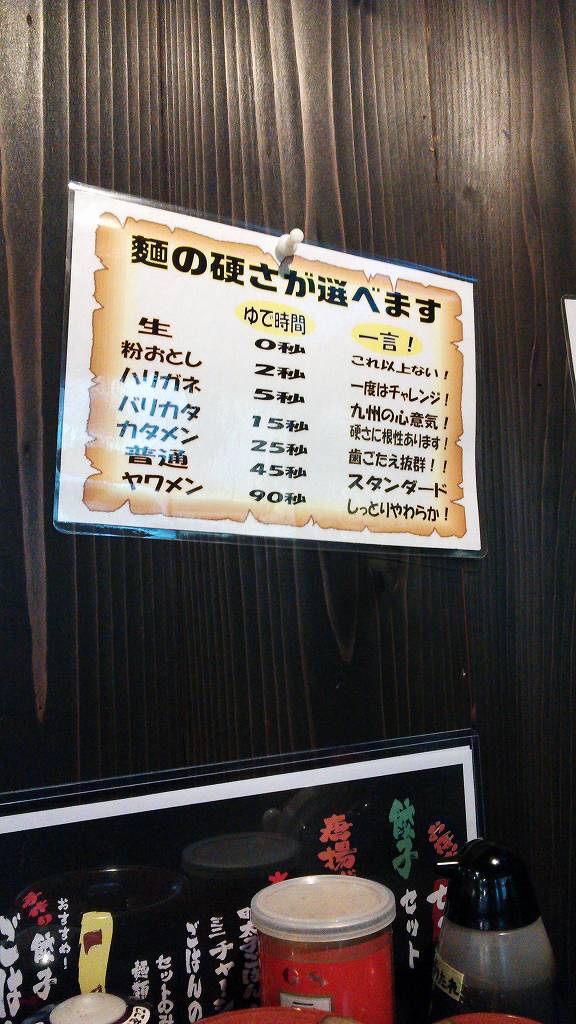 麺の硬さが選べます
ゆで時間 一言！
生 0秒 これ以上ない！
粉おとし 2秒 一度はチャレンジ！
ハリガネ 5秒 九州の心意気！
バリカタ 15秒 硬さに根性あります！
カタメン 25秒 歯ごたえ抜群！！
普通 45秒 スタンダード
ヤワメン 90秒 しっとりやわらか！
餃子セット
唐揚
ごはんの
セットのみ
麺類
おすすめ！
餃子
ごは